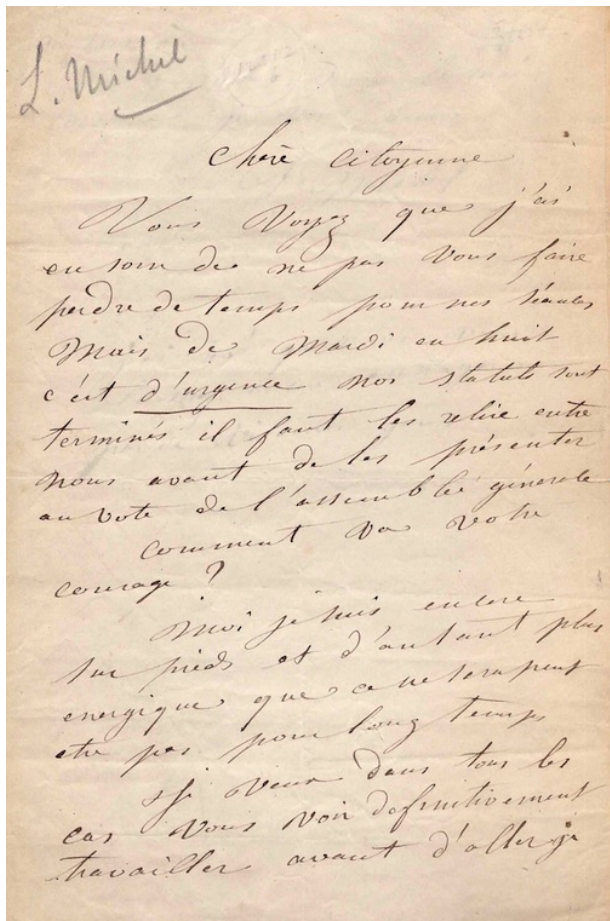 L. Michel
Chère Citoyenne
Vous Voyez que j'ai
eu soin de ne pas Vous faire
perdre de temps pour nos séances
Mais de Mardi en huit
c'est d'urgence nos statuts sont
terminés il faut les relire entre
nous avant de les présenter
au vote de l'assemblée générale
comment va votre
courage ?
Moi je suis encore
sur pieds et d'autant plus
energique que ce ne sera peut
etre pas pour long temps
Je veux dans tous les
cas vous voir definitivement
travailler avant d'aller